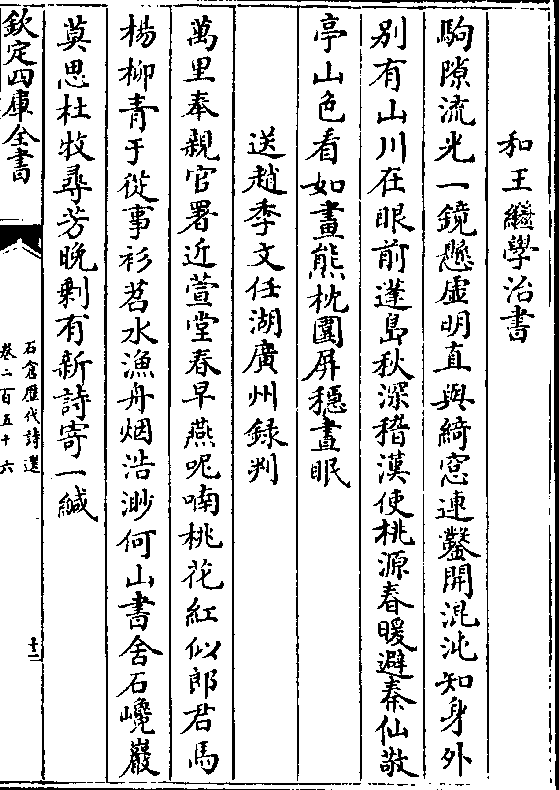 和王繼學治書
駒隙流光一鏡懸虛明直與綺窓連鑿開混沌知身外
别有山川在眼前蓬島秋深稽漢使桃源春暖避秦仙敬
亭山色看如畫熊枕圍屏穏晝眠
送趙季文任湖廣州錄判
萬里奉親官署近萱堂春早燕呢喃桃花紅似郎君馬
楊柳青于從事衫苕水漁舟烟浩渺何山書舍石巉巖
莫思杜牧尋芳晩剰有新詩寄一緘
欽定四庫全書
石倉歴代詩選
卷二百五十六
十二